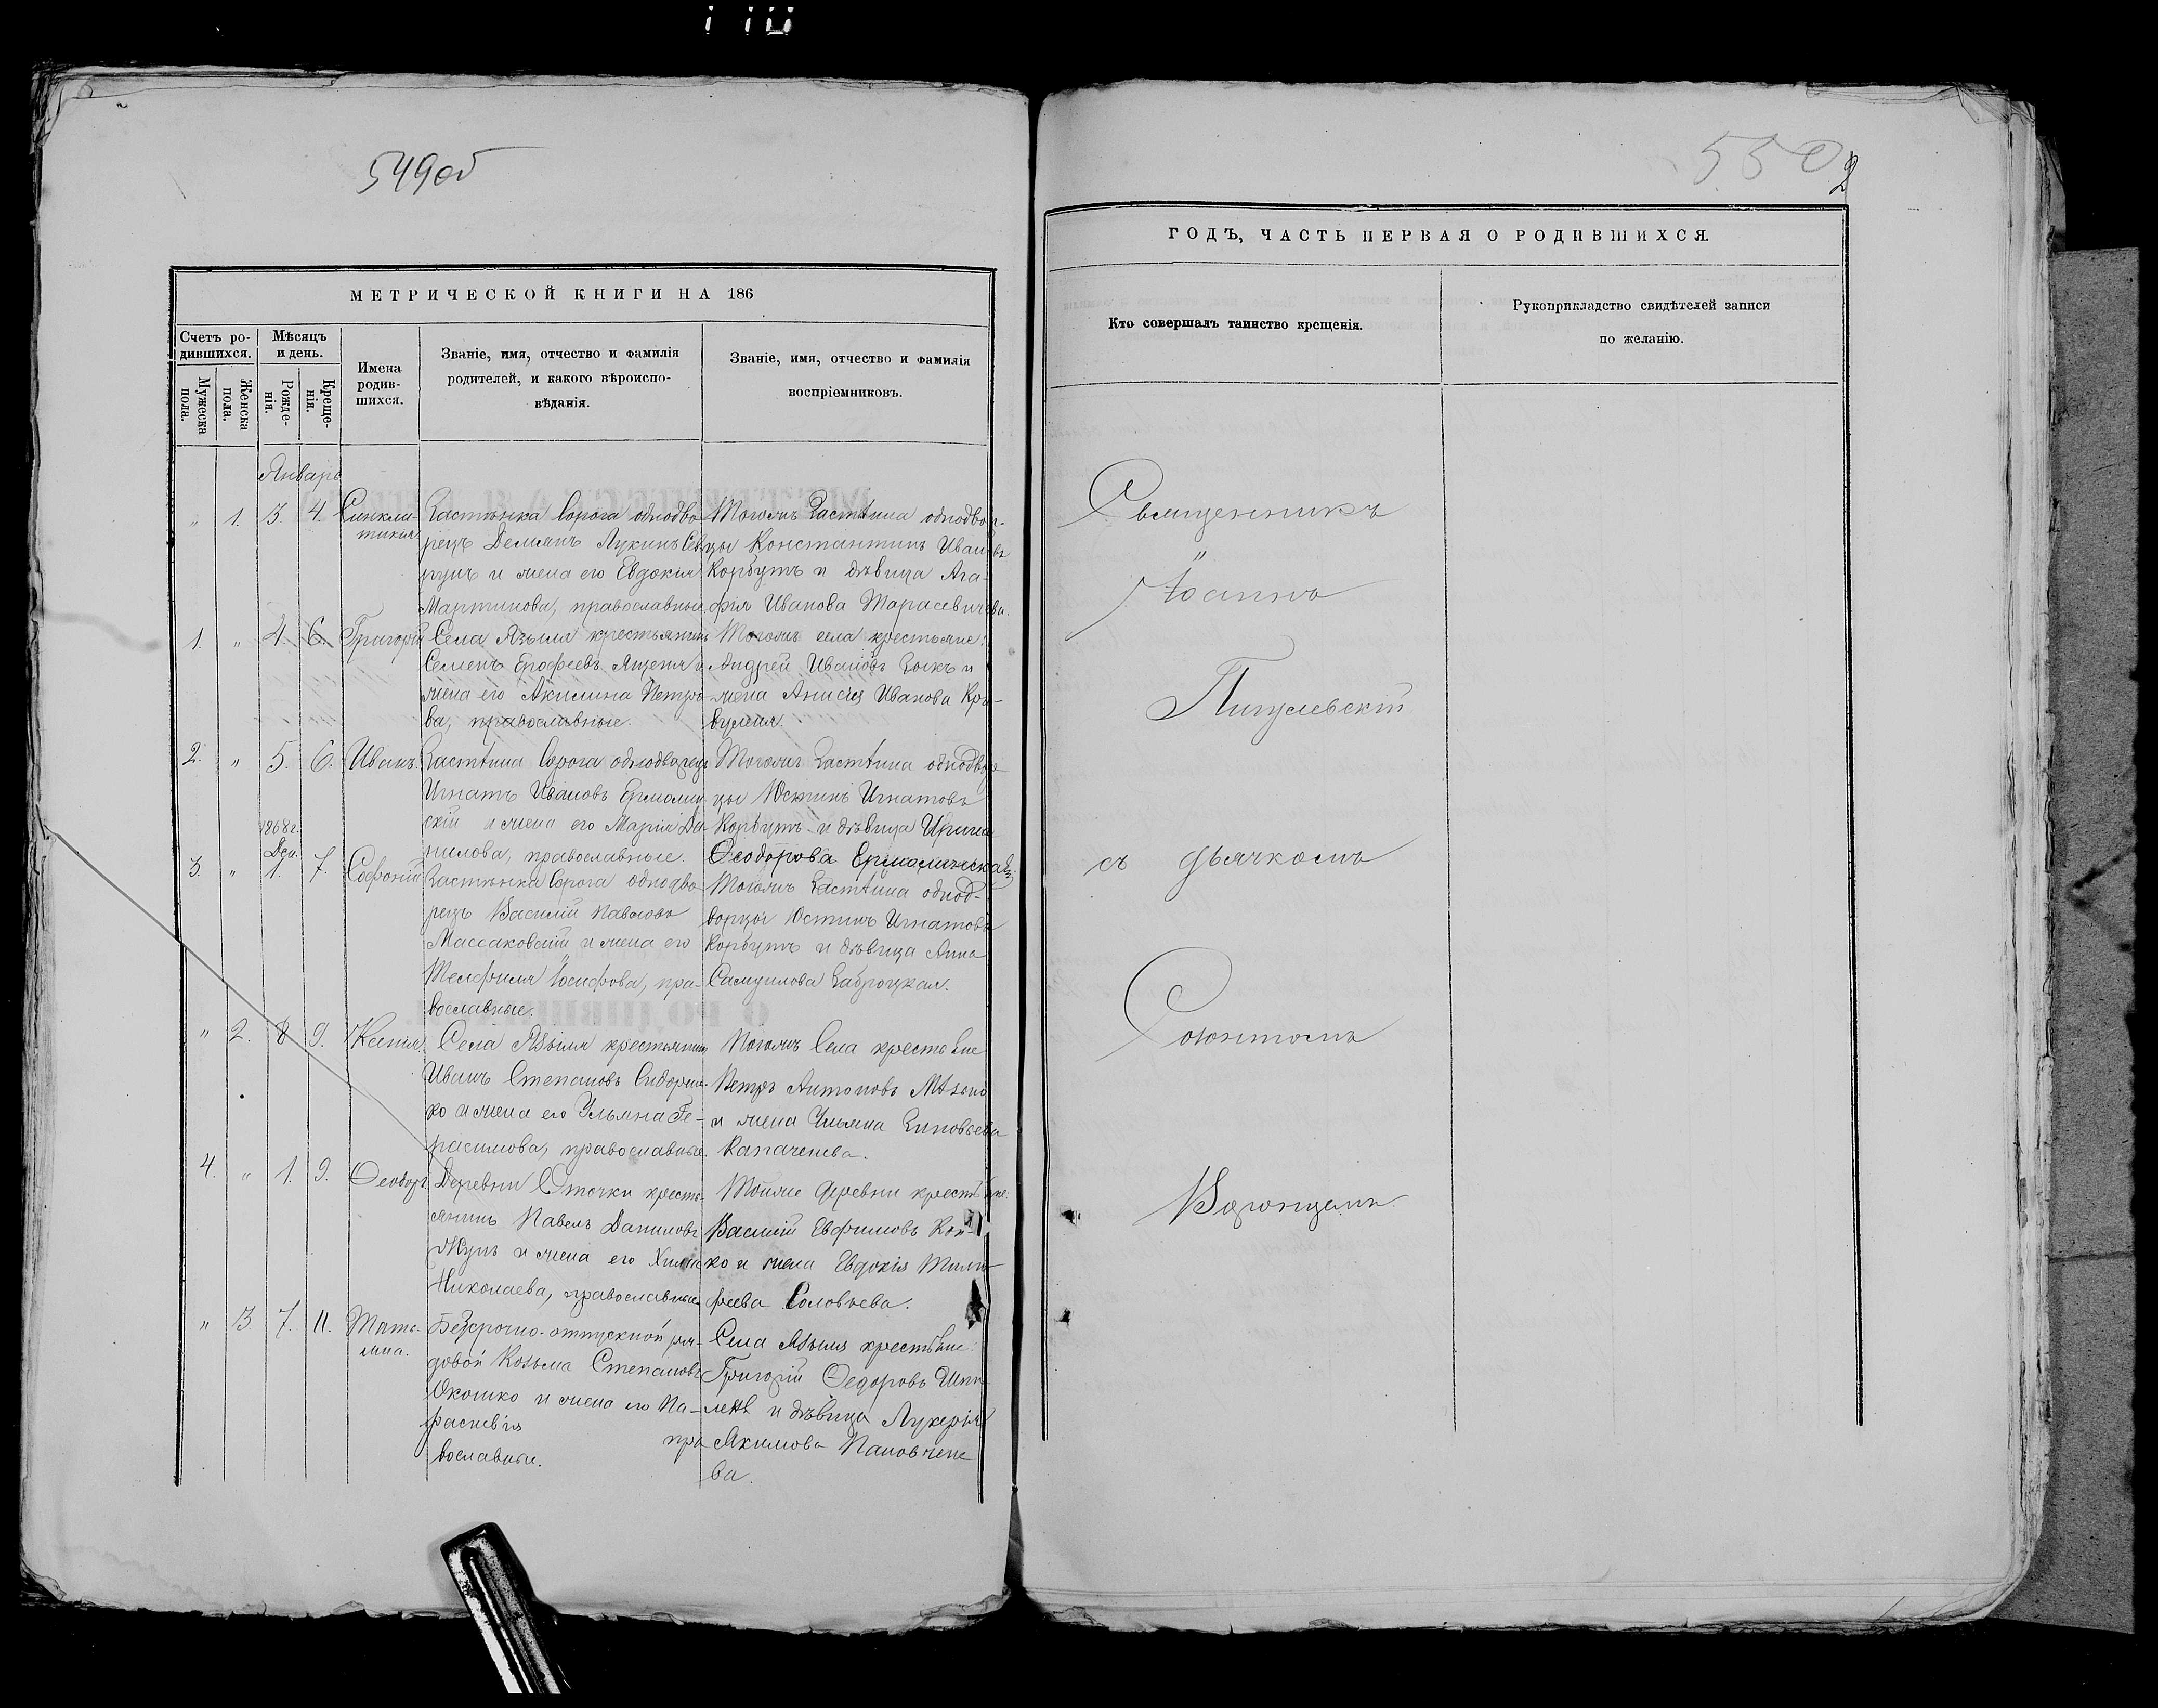 549об
МЕТРИЧЕСКОЙ КНИГИ НА 186
Счетъ ро-
дившихся.
Мужеска
пола.
Женска
пола.
Мѣсяцъ
и день.
Рожде-
нія.
Креще-
нія.
Имена
родив-
шихся.
Званіе, имя, отчество и фамилія
родителей, и какого вѣроиспо-
вѣданія.
Званіе, имя, отчество и фамилія
воспріемниковъ.
Январь
" 1. 3. 4. Синкли-
тикія
Застѣнка Сорога однодво-
рецъ Демьянъ Лукинъ
и жена его Евдокія
Мартинова, православные.
Тогожъ Застѣнка однодвор-
цы Константинъ Ивановъ
Корбутъ и дѣвица Ага-
фія Иванова Тарасевичева.
1. " 4. 6. Григорій
Села Языля крестьянинъ
Семенъ Ерофеевъ
жена его Акилина Петро-
ва, православные.
Тогожъ села крестьяне:
Андрей Ивановъ Зыкъ и
жена Анисія Иванова
2. " 5. 6. Иванъ.
Застѣнка Сорога однодворецъ
Игнатъ Ивановъ Ермолин-
скій и жена его Марія Да-
нилова, православные.
Тогожъ Застѣнка однодвор-
цы Юстинъ Игнатовъ
Корбутъ и дѣвица
Ѳеодорова
1868 г.
Дек.
3. " 1. 7. Софоній
Застѣнка Сорога однодво-
рецъ Василій Павловъ
Массаковскій и жена его
Телефилія Іосифова, пра-
вославные.
Тогожъ Застѣнка однод-
ворцы Юстинъ Игнатовъ
Корбутъ и дѣвица Анна
Самуилова Заброцкая.
" 2. 8. 9. Ксенія.
Села Языля крестьянинъ
Иванъ Степановъ Сидорен-
ко и жена его Ульяна Ге-
расимова, православные.
Тогожъ Села крестьяне
Петръ Антоновъ
и жена Ульяна Зиновьева
4. " 1. 9. Ѳеодоръ
Деревни крестья-
янинъ Павелъ Даниловъ
и жена его
Николаева, православные
Тойже деревни крестьяне:
Василій Евфимовъ
ко и жена Евдокія Тимо-
феева Соловьева.
" 3. 7. 11. Татя-
ина.
Безсрочно-отпускной ря-
довой Козьма Степановъ
Окошко и жена его Па-
раскевія пра
вославные.
Села Языля крестьяне:
Григорій Ѳедоровъ
и дѣвица Лукерія
Якимова
ва.
550
2
ГОДЪ, ЧАСТЬ ПЕРВАЯ О РОДИВШИХСЯ.
Кто совершалъ таинство крещенія.
Рукоприкладство свидѣтелей записи
по желанію.
Священникъ
Іоаннъ
Пигулевскій
съ дьячкомъ